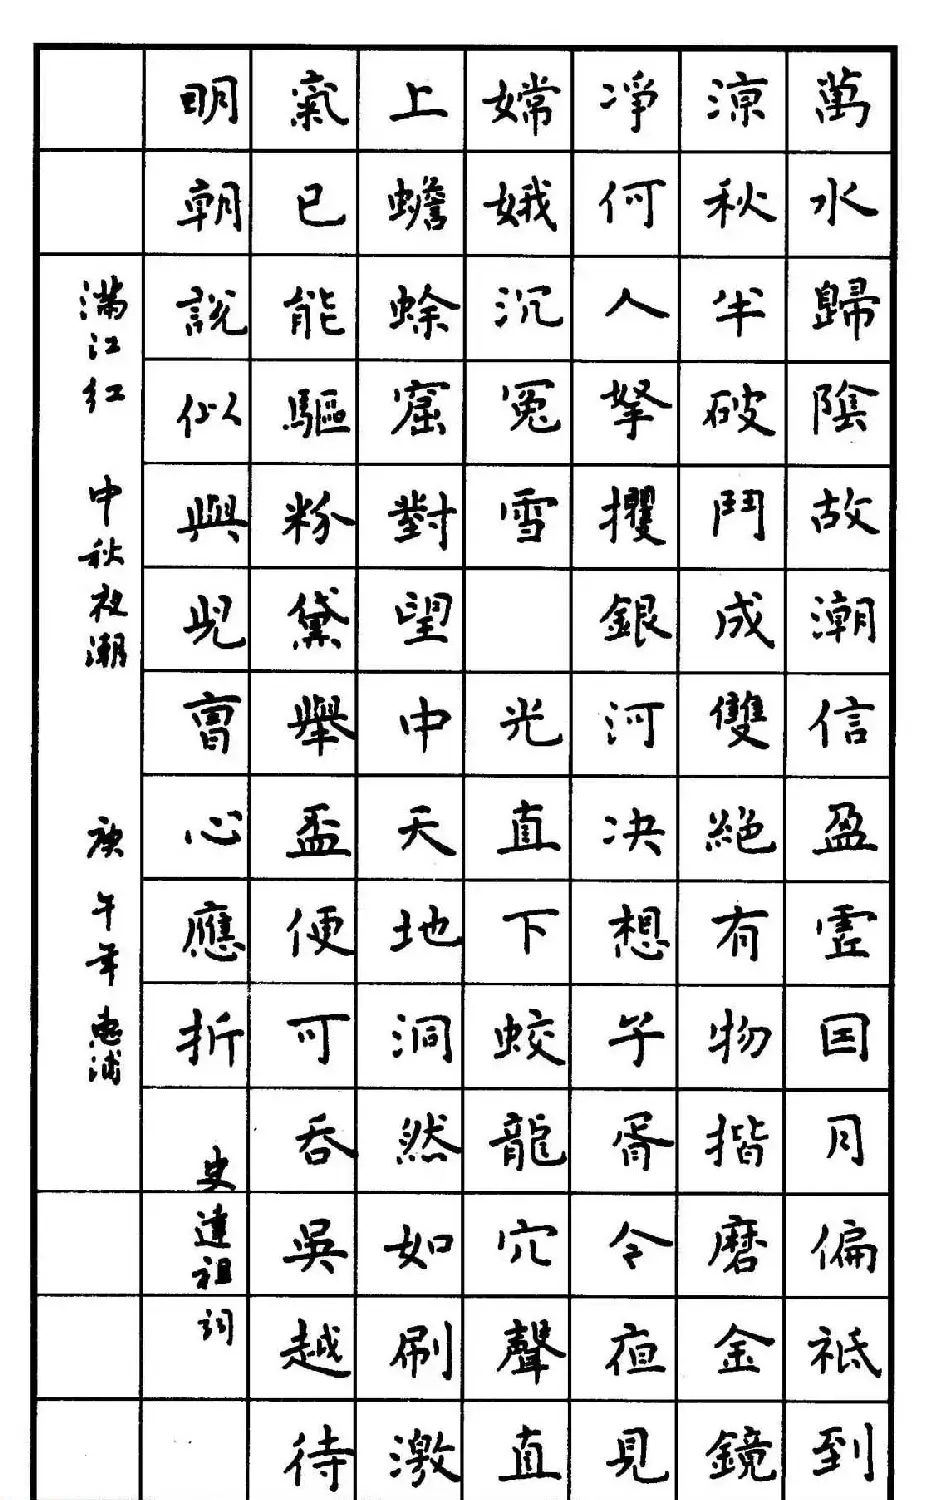 萬水歸陰故潮信盈虛因月偏祗到
涼秋半破鬥成雙絕有物揩磨金鏡
凈何人拏攫銀河決想子胥今夜見
嫦娥沉冤雪 光直下蛟龍穴聲直
上蟾蜍窟對望中天地洞然如刷激
氣已能驅粉黛舉盃便可吞吳越待
明朝說似與兒曹心應折 史達祖詞
满江红 中秋夜潮 庚午年惠浦